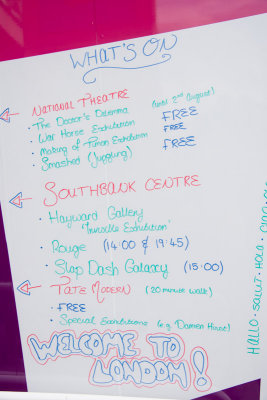 WHAT'S ON
NATIONAL THEATRE
· The Doctor's Dilemma (until 2nd August)
· War Horse Exhibition FREE
· Making of Timon Exhibition FREE
· Smashed (Juggling) FREE
SOUTHBANK CENTRE
· Hayward Gallery
'Invisible Exhibition'
· Rouge (14:00 & 19:45)
· Slap Dash Galaxy (15:00)
TATE MODERN (20 minute walk)
· FREE
· Special Exhibitions (e.g. Damien Hirst)
WELCOME TO
LONDON!
HALLO · SALUT · HOLA · CIAO